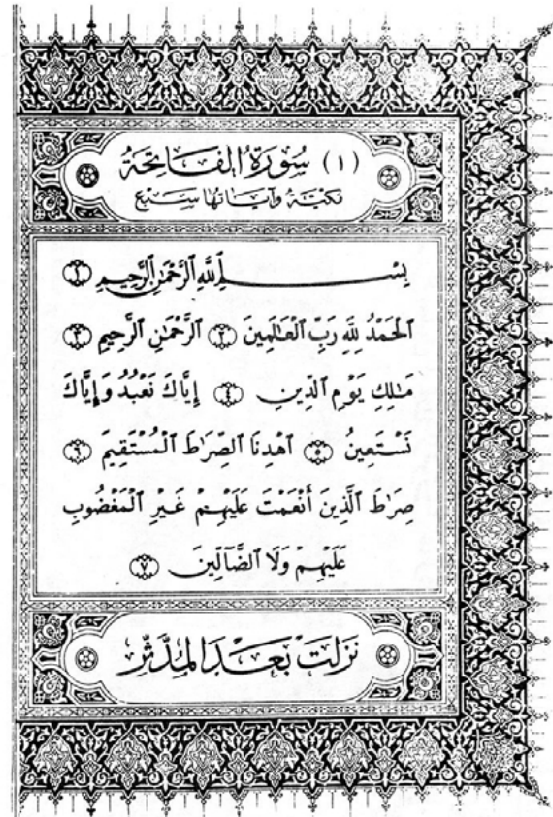 (١) سُورَةُ الفَاتِحَة
مَكِيَّة وَآيَاتُهَا سَبْع
بِسْمِ ٱللَّهِ ٱلرَّحْمَٰنِ ٱلرَّحِيمِ ۝١
ٱلْحَمْدُ لِلَّهِ رَبِّ ٱلْعَٰلَمِينَ ۝٢ ٱلرَّحْمَٰنِ ٱلرَّحِيمِ ۝٣
مَٰلِكِ يَوْمِ ٱلدِّينِ ۝٤ إِيَّاكَ نَعْبُدُ وَإِيَّاكَ
نَسْتَعِينُ ۝٥ ٱهْدِنَا ٱلصِّرَٰطَ ٱلْمُسْتَقِيمَ ۝٦
صِرَٰطَ ٱلَّذِينَ أَنْعَمْتَ عَلَيْهِمْ غَيْرِ ٱلْمَغْضُوبِ
عَلَيْهِمْ وَلَا ٱلضَّآلِّينَ ۝٧
نَزَلَتْ بَعْدَ المدَّثِّر